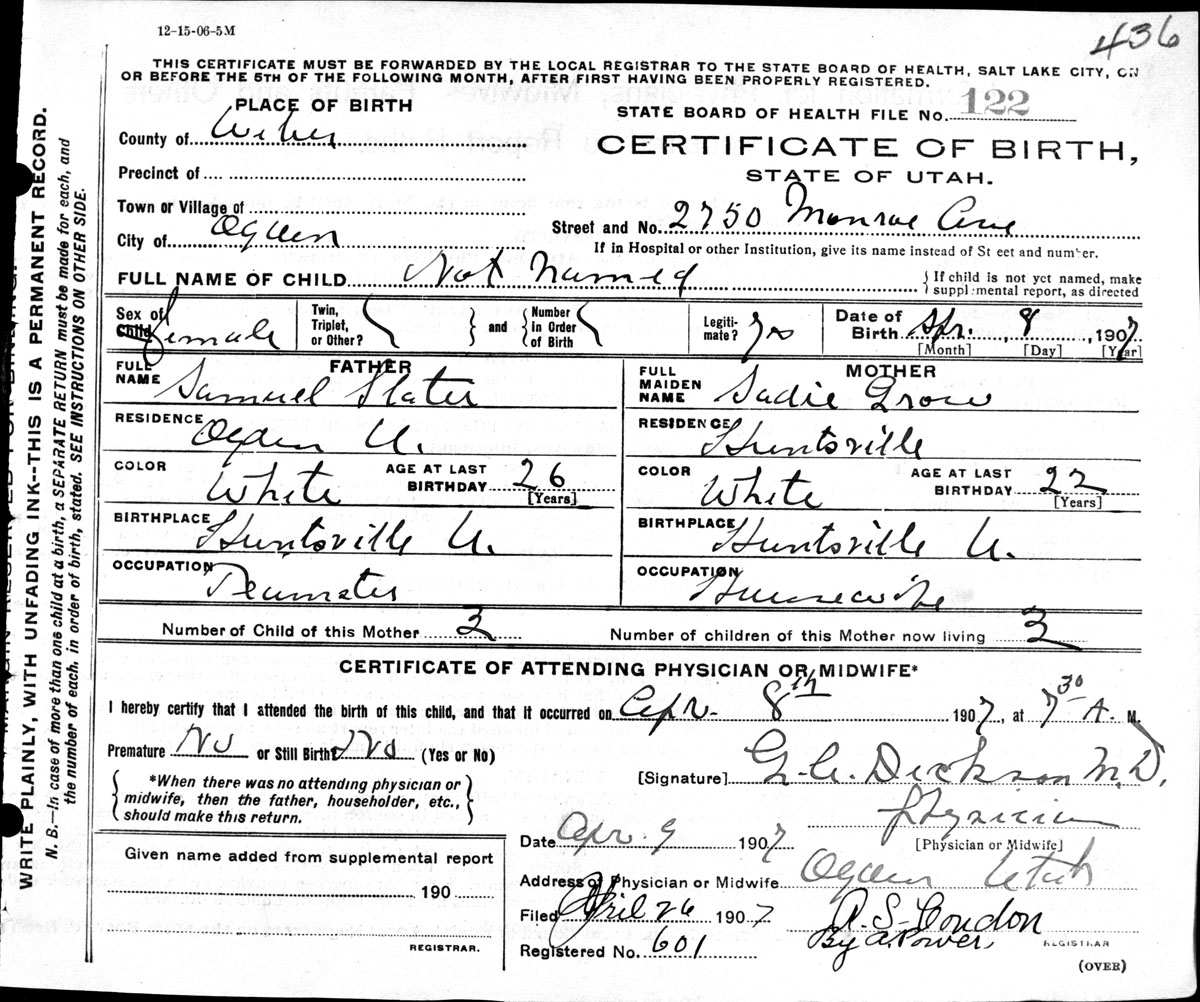 12-15-06-5M
436
THIS CERTIFICATE MUST BE FORWARDED BY THE LOCAL REGISTRAR TO THE STATE BOARD OF HEALTH, SALT LAKE CITY, ON
OR BEFORE THE 5TH OF THE FOLLOWING MONTH, AFTER FIRST HAVING BEEN PROPERLY REGISTERED.
PLACE OF BIRTH
STATE BOARD OF HEALTH FILE No. 122
County of Weber
CERTIFICATE OF BIRTH,
STATE OF UTAH.
Precinct of
Town or Village of
City of Ogden
Street and No. 2750 Monroe Ave
If in Hospital or other Institution, give its name instead of St eet and number.
FULL NAME OF CHILD Not Named
{If child is not yet named, make
supplemental report, as directed
Sex of Child Female
Twin, Triplet, or Other?
and
Number in Order of Birth
Legitimate? yes
Date of Birth Apr. 8, 1907
[Month] [Day] [Year]
FATHER
FULL NAME Samuel Slater
RESIDENCE Ogden U.
COLOR White
AGE AT LAST BIRTHDAY 26
[Years]
BIRTHPLACE Huntsville U.
OCCUPATION Teamster
MOTHER
FULL MAIDEN NAME Sadie Grow
RESIDENCE Huntsville
COLOR White
AGE AT LAST BIRTHDAY 22
[Years]
BIRTHPLACE Huntsville U.
OCCUPATION Housewife
Number of Child of this Mother 3
Number of children of this Mother now living 3
CERTIFICATE OF ATTENDING PHYSICIAN OR MIDWIFE*
I hereby certify that I attended the birth of this child, and that it occurred on Apr. 8th 1907, at 7 30 A. M.
Premature No or Still Birth? No (Yes or No)
*When there was no attending physician or
midwife, then the father, householder, etc.,
should make this return.
[Signature] Dickson M.D.
Physician
[Physician or Midwife]
Date Apr. 9 1907
Given name added from supplemental report
190
REGISTRAR.
Address of Physician or Midwife Ogden Utah
Filed April 26 1907
R. S. Condon
By A. Power,
REGISTRAR
Registered No. 601
(OVER)
WRITE PLAINLY, WITH UNFADING INK--THIS IS A PERMANENT RECORD.
N. B.—In case of more than one child at a birth, a SEPARATE RETURN must be made for each, and
the number of each, in order of birth, stated. SEE INSTRUCTIONS ON OTHER SIDE.